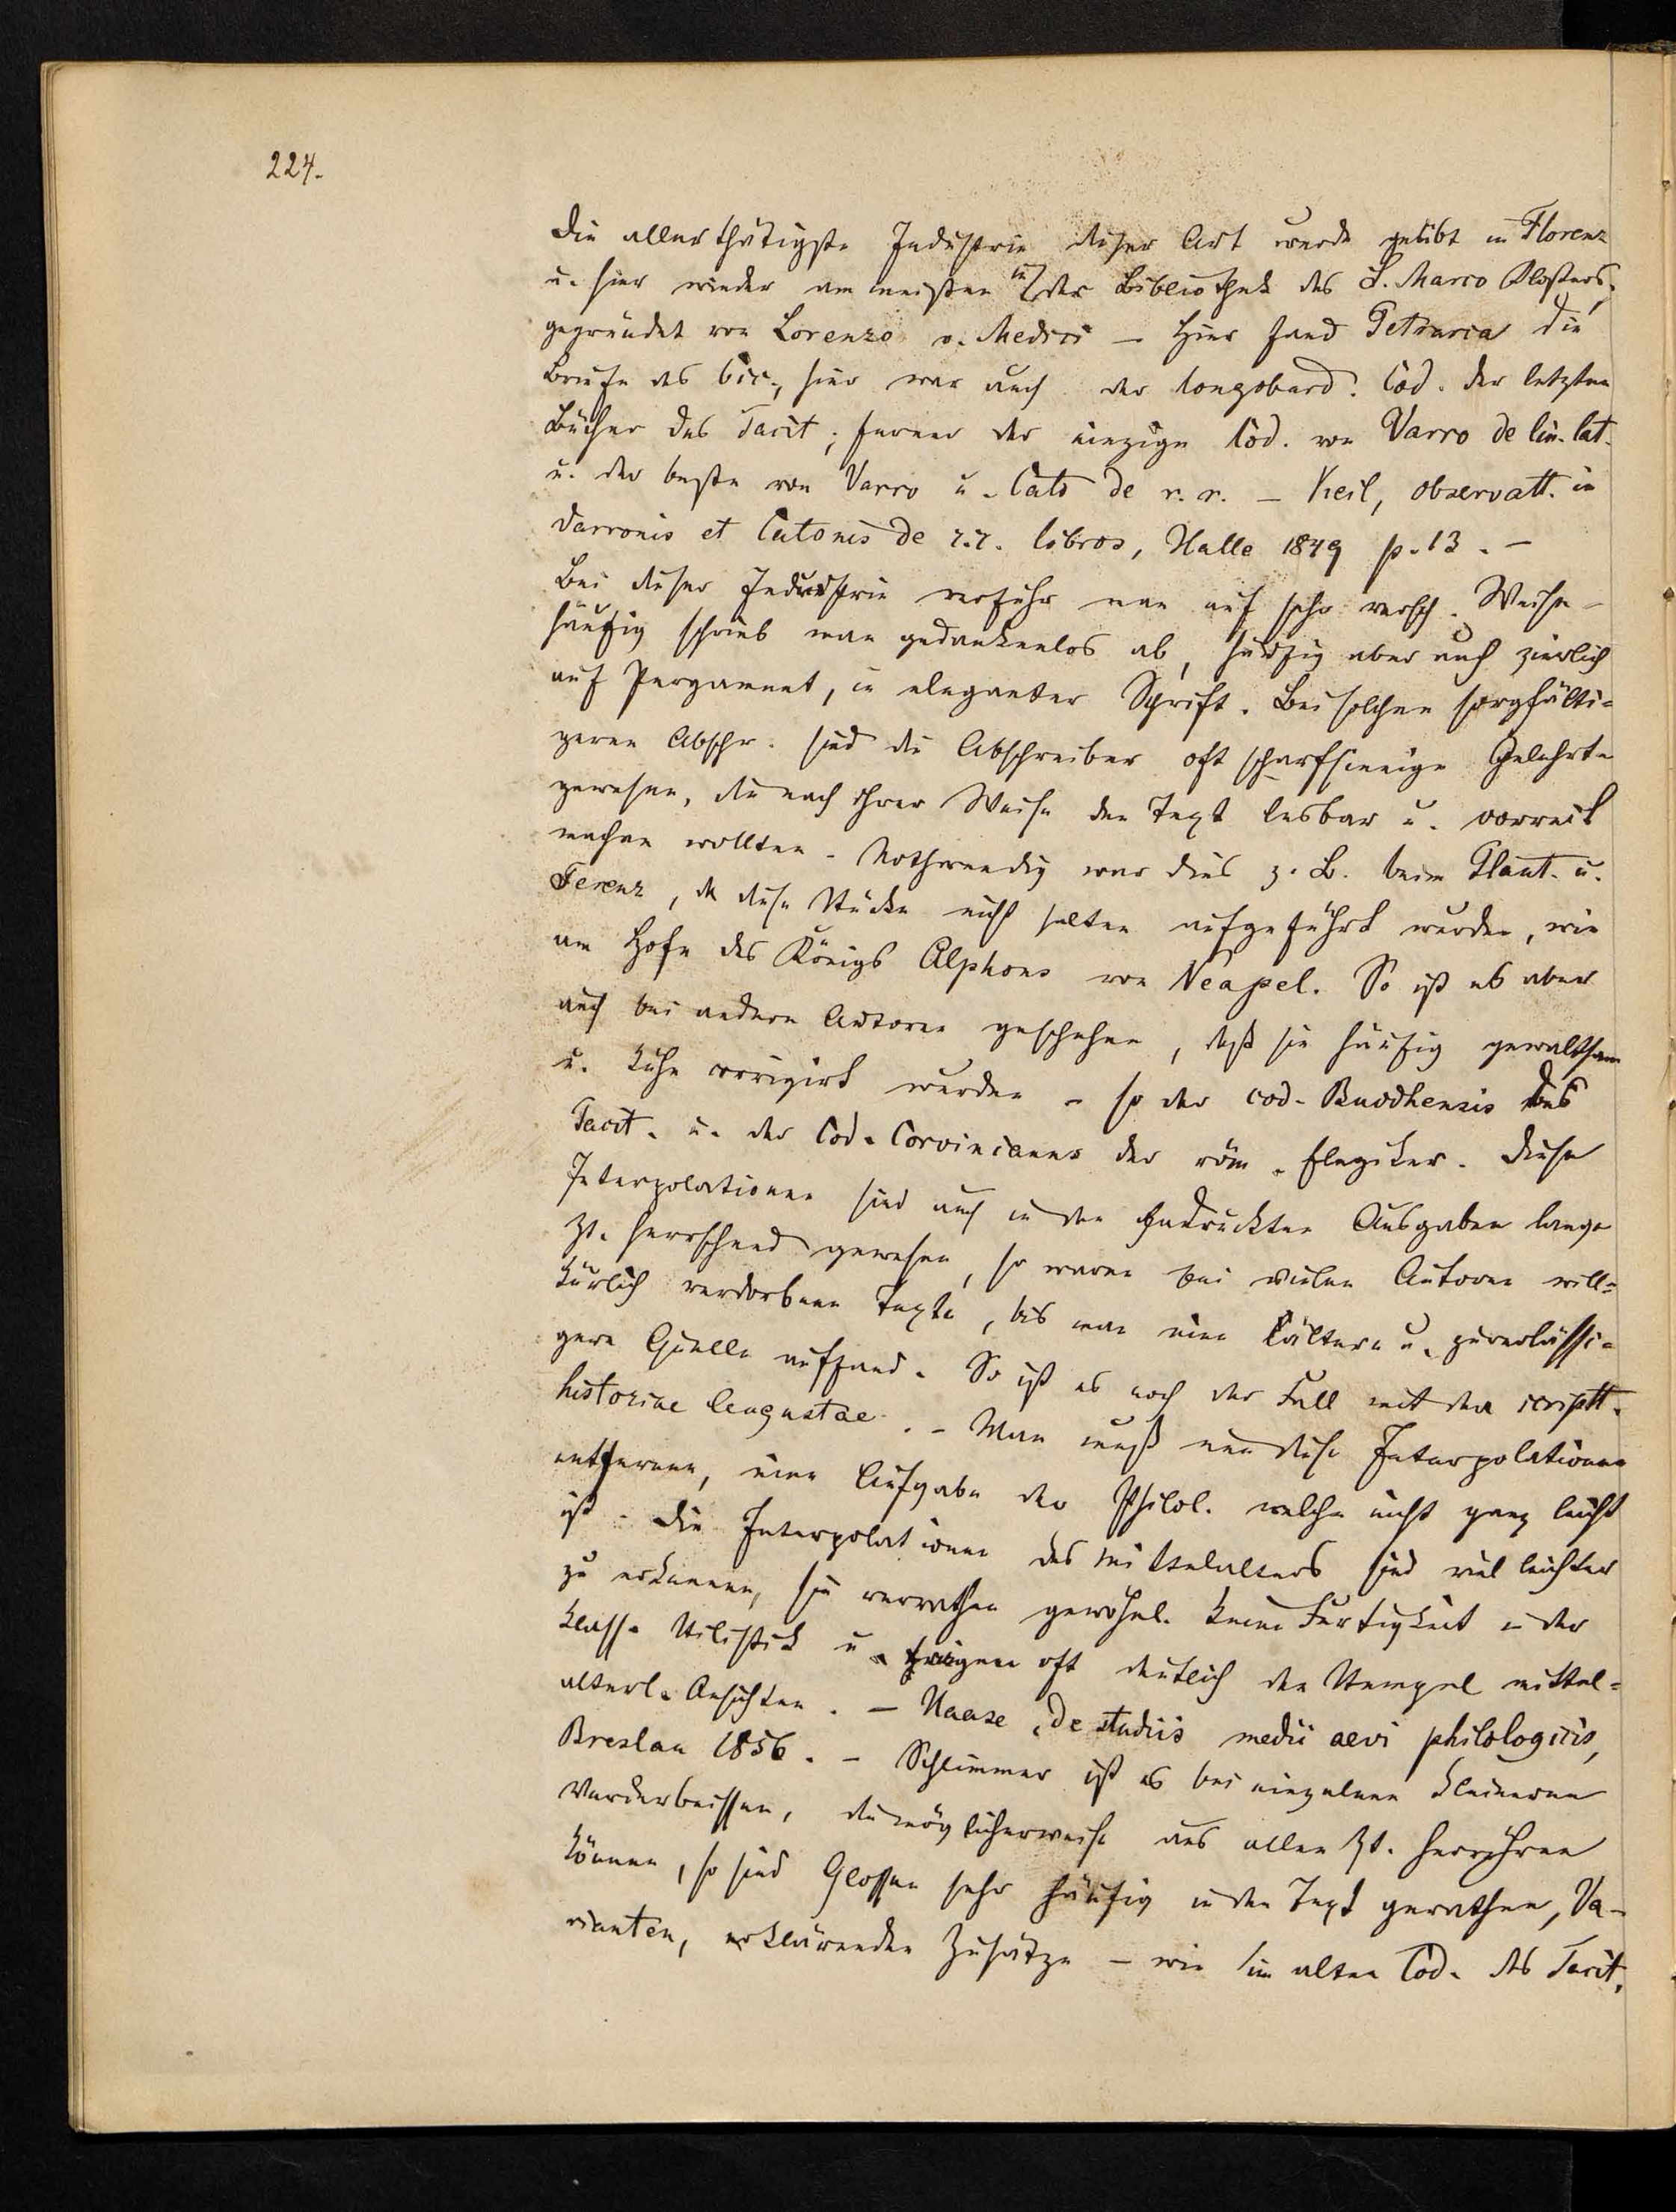 224.
Die allerthätigste Industrie dieser Art wurde geübt in Florenz
u. hier wieder am meisten in der Bibliothek des S. Marco Klosters,
gegründet von Lorenzo v. Medici – Hier fand Petrarca die
Briefe des Cic., hier war auch der longobard. Cod. der letzten
Bücher des Tacit; ferner der einzige Cod. von Varro de lin. lat.
u. der beste von Varro u. Cato de r. r. – Keil, observatt. in
Varronis et Catonis de r. r. libros, Halle 1849 p. 13. –
Bei dieser Industrie verfuhr man auf sehr versch. Weise –
häufig schrieb man gedankenlos ab, häufig aber auch zierlich
auf Pergament, in eleganter Schrift. Bei solchen sorgfälti=
geren Abschr. sind die Abschreiber oft scharfsinnige Gelehrte
gewesen, die nach ihrer Weise den Text lesbar u. correct
machen wollten. Nothwendig war dies z. B. beim Plaut. u.
Terenz, da diese Stücke nicht selten aufgeführt wurden, wie
am Hofe des Königs Alphons von Neapel. So ist es aber
auch bei andern Autoren geschehen, daß sie häufig gewaltsam
u. kühn corrigirt wurden – so der cod. Buodhensis des
Tacit. u. der Cod. Corvinianus der röm. Elegiker. Diese
Interpolationen sind auch in den gedruckten Ausgaben lange
Zt. herrschend gewesen, so waren bei vielen Autoren will=
kürlich verdorbene Texte, bis man eine ältere u. zuverlässi=
gere Quelle auffand. So ist es noch der Fall mit den scriptt.
historiae Augustae. – Man muß nun diese Interpolationen
entfernen, eine Aufgabe der Philol. welche nicht ganz leicht
ist. Die Interpolationen des Mittelalters sind viel leichter
zu erkennen, sie verrathen gewöhnl. keine Fertigkeit in der
klass. Stilistik u. tragen oft deutlich den Stempel mittel=
alterl. Ansichten. – Haase, de studiis medii aevi philologicis,
Breslau 1856. – Schlimmer ist es bei einzelnen kleineren
Verderbnissen, die möglicherweise aus allen Zt. herrühren
können, so sind Glossen sehr häufig in den Text gerathen, Va-
rianten, erklärenden Zusätze – wie im alten Cod. des Tacit,